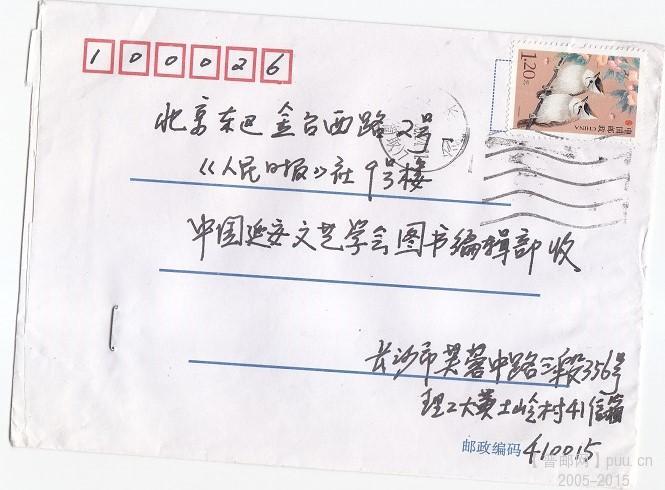 100026
1.20元
中国邮政 CHINA
北京东巴金台西路2号
《人民日报》社9号楼
中国延安文艺学会图书编辑部收
长沙市芙蓉中路三段356号
理工大黄土岭村41信箱
邮政编码 410015
【普邮网】puu.cn
2005-2015